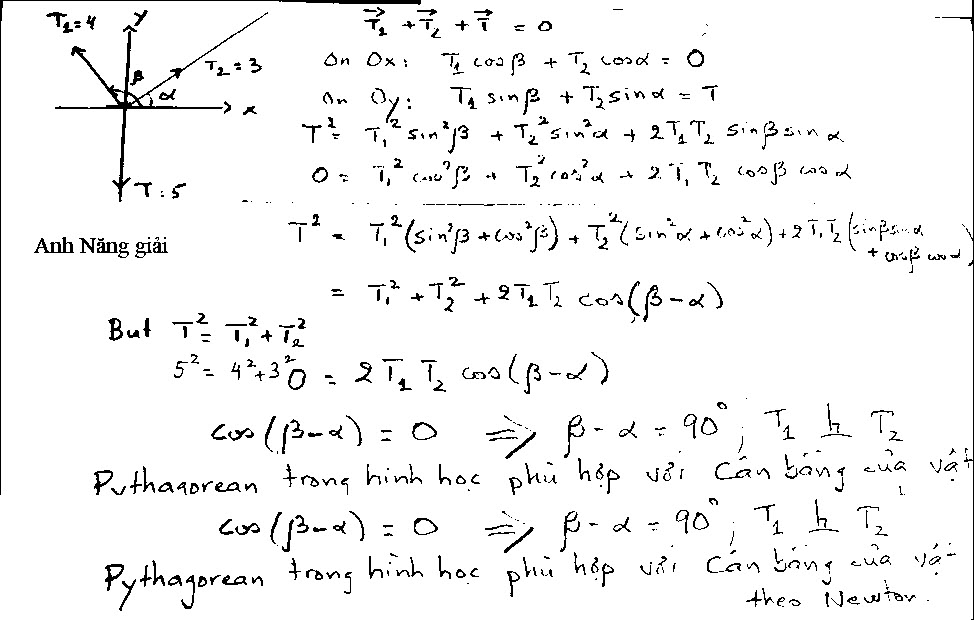 T₁=4 y
T₂=3
β α
x
T:5
T⃗₁ + T⃗₂ + T⃗ = 0
On Ox: T₁ cosβ + T₂ cosα = 0
On Oy: T₁ sinβ + T₂ sinα = T
T² = T₁² sin²β + T₂² sin²α + 2T₁T₂ sinβ sinα
0 = T₁² cos²β + T₂² cos²α + 2T₁T₂ cosβ cosα
Anh Năng giải
T² = T₁²(sin²β + cos²β) + T₂²(sin²α + cos²α) + 2T₁T₂(sinβ sinα
+ cosβ cosα)
= T₁² + T₂² + 2T₁T₂ cos(β-α)
But T² = T₁² + T₂²
5² = 4²+3² 0 = 2T₁T₂ cos(β-α)
cos(β-α) = 0 => β-α = 90°; T₁ h T₂
Pythagorean trong hình học phù hợp với Cân bằng của vật
cos(β-α) = 0 => β-α = 90°; T₁ h T₂
Pythagorean trong hình học phù hợp với Cân bằng của vật
theo Newton.